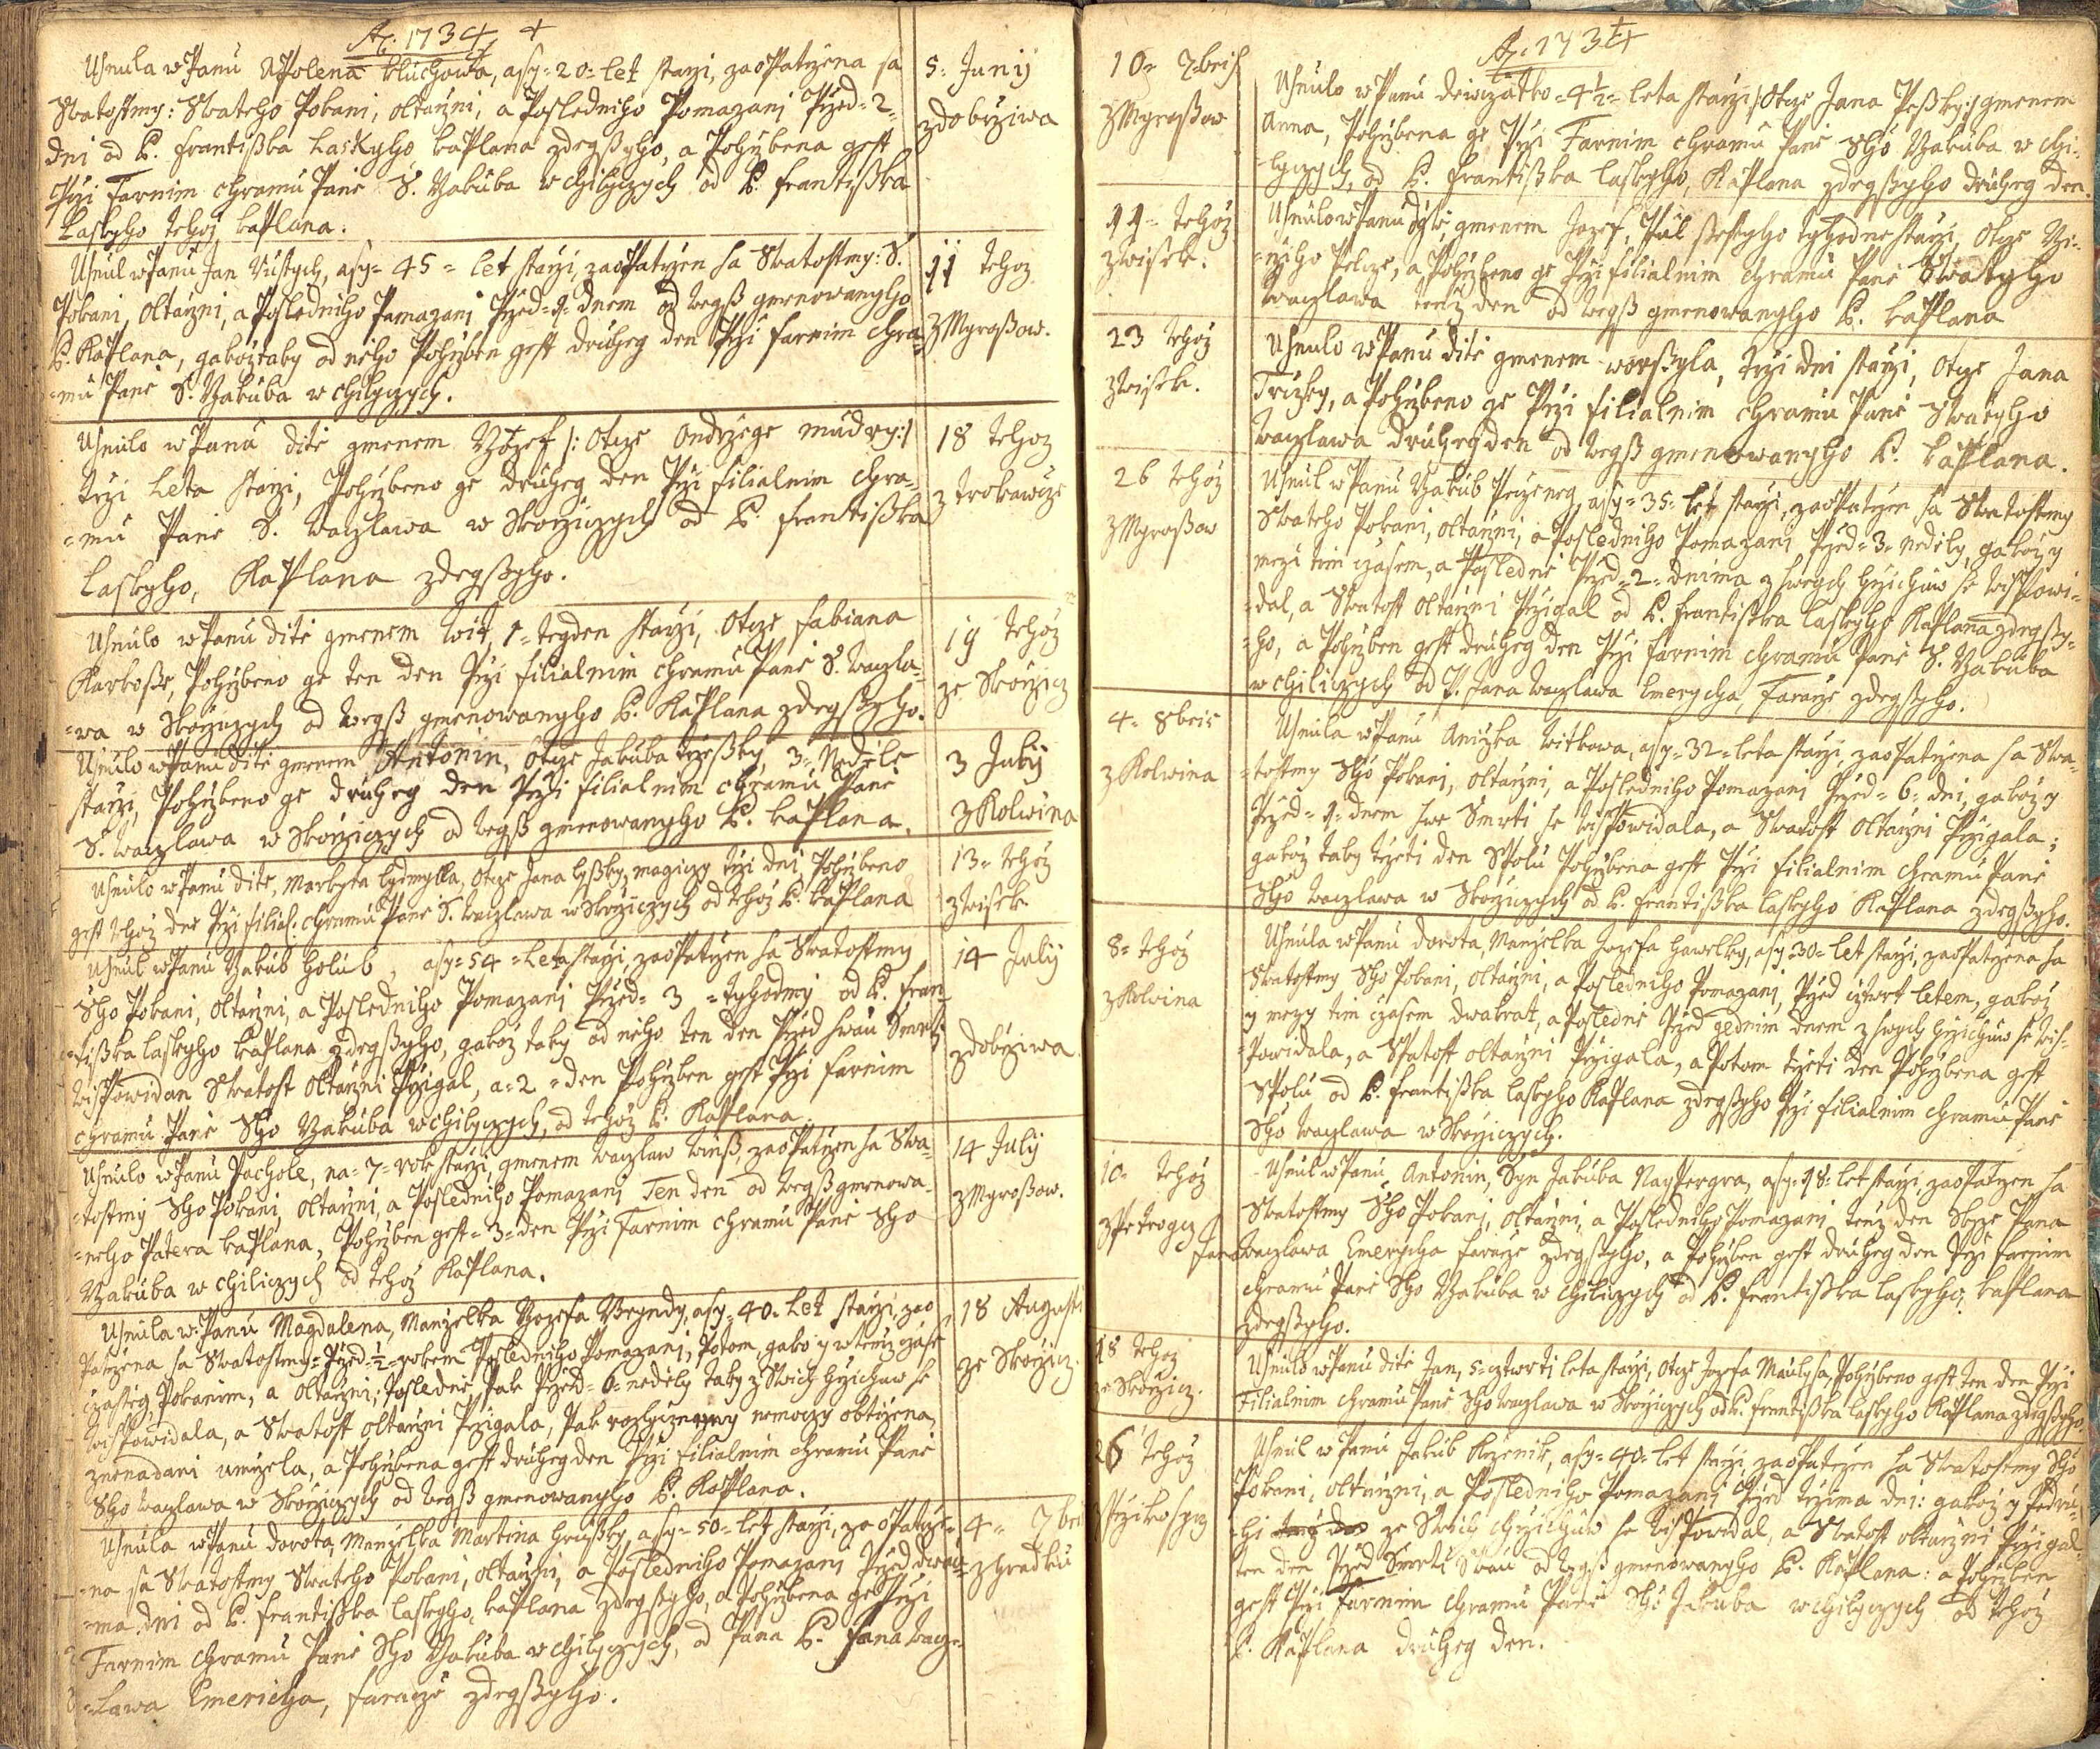 Ao. 1734
Usnula w Panu Apolena kluchowa, asy=20=let starzi, zaopatrzena sa
Swatostmy: Swateho Pokani, oltarzni, a Posledniho Pomazani Przed=2=
dni od P. Frantisska Laskyho kaplana zdegssyho, a Pohrzbena gest
Przi Farnim chramu Pane S. Yakuba w chilyczych od P. Frantisska
Laskyho tehoz kaplana.
5= Junij
zdobrziwa
Usnul w Panu Jan asy=45=let starzi, zaopatrzen sa Swatostmy: S.
Pokani, oltarzni, a Posledniho Pamazani Przed=1=dnem od wegss gmenowanyho
P. Kaplana, gakoz taky od neho Pohrzben gest druheg den Przi farnim chra=
=mu Pane S. Yakuba w chilyczych.
11 tehoz
zMyrossow.
Usnulo w Panu dite gmenem Yozef /: otcze Ondrzege mudry:/
trzi Leta starzi, Pohrzbeno ge druheg den Przi filialnim chra=
=mu Pane S. Waczlawa w Skorziczych od P. Frantisska
Laskyho, Kaplana zdegssyho.
18 tehoz
z trokawcze
Usnulo w Panu dite gmenem Wit, 1=tegden starzi, otcze Fabiana
Karbosse, Pohrzbeno ge ten den Przi filialnim chramu Pane S. Waczla=
=wa w Skorziczych od wegss gmenowanyho P. Kaplana zdegssyho.
19 tehoz
ze Skorzicz
Usnulo w Panu dite gmenem Antonin, otcze Jakuba trzessky, 3=Nedele
starzi, Pohrzbeno ge druheg den Przi filialnim chramu Pane
S. Waczlawa w Skorziczych od wegss gmenowanyho P. kaplana.
3 Julij
zKolwina
Usnulo w Panu dite, Markyta lydmylla, otcze Jana lyssky, magiczy trzi dni, Pohrzbeno
gest tehoz dne Przi filial: chramu Pane S. Waczlawa w Skorziczych od tehoz P. kaplana
13= tehoz
zwisek
Usnul w Panu Yakub Holub, asy=54=Leta starzi, zaopatrzen sa Swatostmy
Sho Pokani, oltarzni, a Posledniho Pomazani Przed=3=tyhodny od P. Fran=
=tisska laskyho kaplana zdegssyho, gakoz taky od neho ten den Przed swau Smrti
wispowidan Swatost oltarzni Przigal, a=2=den Pohrzben gest Przi farnim
chramu Pane Sho Yakuba w chilyczych, od tehoz P. Kaplana.
14 Julij
zdobrziwa.
Usnulo w Panu Pachole, na=7=rok starzi, gmenem Waczlaw winss, zaopatrzen sa Swa=
=tostmy Sho Pokani, oltarzni, a Posledniho Pomazani Ten den od wegss gmenowa=
=neho Patera kaplana, Pohrzben gest=3=den Przi Farnim chramu Pane Sho
Yakuba w chiliczych od tehoz Kaplana.
14 Julij
zMyrossow.
Usnula w Panu Magdalena, Manzelka Yozefa asy=40=Let starzi, zao=
patrzena sa Swatostmy=Przed=1/2=rokem Posledniho Pomazani; Potom, gakoz y w temz czase
czasteg Pokanim, a oltarzni; Posledne, Pak Przed=6=nedely taky z Swich hrzichuw se
wispowidala, a Swatost oltarzni Przigala, Pak nemoczy obtizena,
znenadani umrzela, a Pohrzbena gest druheg den Przi filialnim chramu Pane
Sho Waczlawa w Skorziczych od wegss gmenowanyho P. Kaplana.
18 Augusti
ze Skorzicz.
Usnula w Panu dorota, Manzelka Martina hrussky, asy=50=let starzi, zaopatrze=
=na sa Swatostmy Swateho Pokani, oltarzni, a Posledniho Pomazani Przed dwau=
=ma dni od P. Frantisska laskyho, kaplana zdegssyho, a Pohrzbena ge Przi
Farnim chramu Pane Sho Yakuba w chilyczych, od Pana P. Jana Wacz=
=lawa Emericha, Faracze zdegssyho.
4= 7bris
z hradku
Ao. 1734
10= 7bris
zMyrossow
Usnulo w Panu dewczatko=4 1/2=leta starzi /:otcze Jana Pessky:/ gmenem
Anna, Pohrzbena ge Przi Farnim chramu Pane Sho Yakuba w chi=
=lyczych, od P. Frantisska laskyho, Kaplana zdegssyho druheg den.
11= tehoz
zwisek.
Usnulo w Panu dite gmenem Jozef, Pul ssestyho tyhodne starzi, otcze
Pelcze, a Pohrzbeno ge Przi filialnim chramu Pane Swatyho
Waczlawa tenz den od wegss gmenowanyho P. kaplana
23 tehoz
zwisek.
Usnulo w Panu dite gmenem worssyla, trzi dni starzi, otcze Jana
Trczky, a Pohrzbeno ge Przi filialnim chramu Pane Swatyho
Waczlawa druheg den od wegss gmenowanyho P. kaplana.
26 tehoz
zMyrossow
Usnul w Panu Yakub asy=35=let starzi, zaopatrzen sa Swatostmy
Swateho Pokani, oltarzni, a Posledniho Pomazani Przed=3=nedely, gakoz y
mezi tim czasem, a Posledne Przed=2=dnima z swegch hrzichuw se wispowi=
=dal, a Swatost oltarzni Przigal od P. Frantisska laskyho Kaplana zdegssy=
=ho, a Pohrzben gest druheg den Przi farnim chramu Pane S. Yakuba
w chiliczych od P. Jana Waczlawa Emerycha, Faracze zdegssyho.
4= 8bris
z Kolwina
Usnula w Panu Aniczka witkowa, asy=32=leta starzi, zaopatrzena sa Swa=
=tostmy Sho Pokani, oltarzni, a Posledniho Pomazani Przed=6=dni, gakoz y
Przed=1=dnem swe Smrti se wispowidala, a Swatost oltarzni Przigala;
gakoz taky trzeti den Spolu Pohrzbena gest Przi filialnim chramu Pane
Sho Waczlawa w Skorziczych od P. Frantisska laskyho Kaplana zdegssyho.
8= tehoz
z Kolwina
Usnula w Panu dorota, Manzelka Jozefa hawelky, asy=30=let starzi, zaopatrzena sa
Swatostmy Sho Pokani, oltarzni, a Posledniho Pomazani, Przed cztwrt letem, gakoz
y mezy tim czasem dwakrat, a Posledne Przed gednim dnem z swych hrzichuw se wis=
=Powidala, a Swatost oltarzni Przigala, a Potom trzeti den Pohrzbena gest
Spolu od P. Frantisska laskyho Kaplana zdegssyho Przi filialnim chramu Pane
Sho Waczlawa w Skorziczych.
10= tehoz
zPetrogcz
Usnul w Panu Antonin, Syn Jakuba asy=18=let starzi, zaopatrzen sa
Swatostmy Sho Pokani, oltarzni, a Posledniho Pomazani tenz den Skrze Pana
Jana Waczlawa Emerycha faracze zdegssyho, a Pohrzben gest druheg den Przi farnim
chramu Pane Sho Yakuba w chiliczych od P. Frantisska laskyho, kaplana
zdegssyho.
18 tehoz
ze Skorzicz.
Usnulo w Panu dite Jan, 5=cztwrti leta starzi, otcze Jozefa Maulysa, Pohrzbeno gest ten den Przi
Filialnim chramu Pane, Sho Waczlawa w Skorziczych od P. Frantisska laskyho Kaplana zdegssyho.
26 tehoz
Usnul w Panu Jakub asy=40=let starzi, zaopatrzen sa Swatostmy Sho
Pokani, oltarzni, a Posledniho Pomazani Przed trzima dni: gakoz y Podru=
=hi ze Swich chrzichuw se wispowidal, a Swatost oltarzni Przigal
ten den Przed Smrti Swau od wegss gmenowanyho P. Kaplana: a Pohrzben
gest Przi Farnim chramu Pane Sho Jakuba w chilyczych od tehoz
P. Kaplana druheg den.